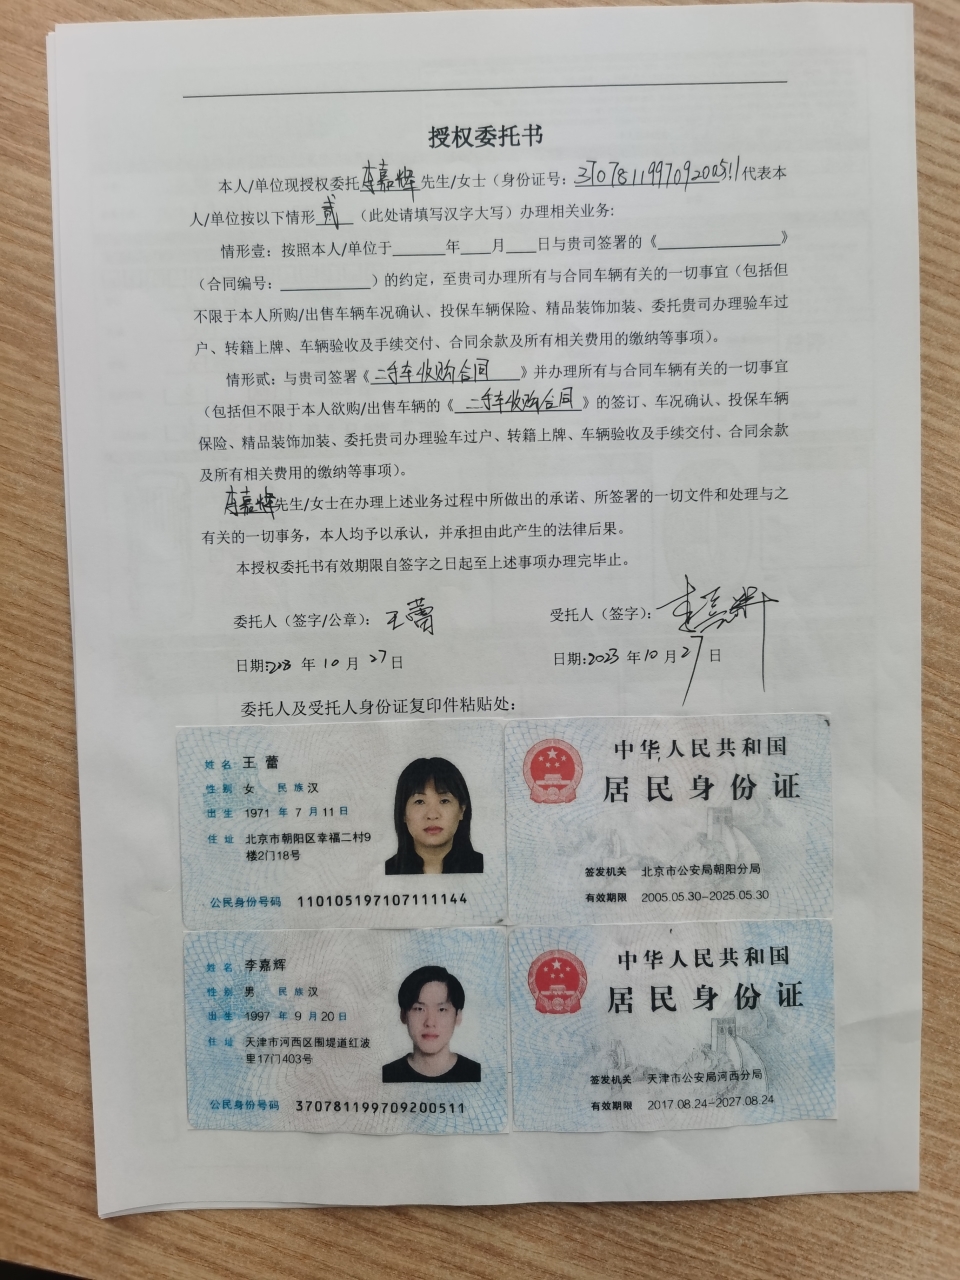 授权委托书
本人/单位现授权委托李嘉辉先生/女士（身份证号：370781199709200511代表本
人/单位按以下情形贰（此处请填写汉字大写）办理相关业务：
情形壹：按照本人/单位于______年____月____日与贵司签署的《______________》
（合同编号：__________）的约定，至贵司办理所有与合同车辆有关的一切事宜（包括但
不限于本人所购/出售车辆车况确认、投保车辆保险、精品装饰加装、委托贵司办理验车过
户、转籍上牌、车辆验收及手续交付、合同余款及所有相关费用的缴纳等事项）。
情形贰：与贵司签署《二手车收购合同》并办理所有与合同车辆有关的一切事宜
（包括但不限于本人欲购/出售车辆的《二手车收购合同》的签订、车况确认、投保车辆
保险、精品装饰加装、委托贵司办理验车过户、转籍上牌、车辆验收及手续交付、合同余款
及所有相关费用的缴纳等事项）。
李嘉辉先生/女士在办理上述业务过程中所做出的承诺、所签署的一切文件和处理与之
有关的一切事务，本人均予以承认，并承担由此产生的法律后果。
本授权委托书有效期限自签字之日起至上述事项办理完毕止。
委托人（签字/公章）：王蕾 受托人（签字）：李嘉辉
日期:2023年10月27日 日期:2023年10月27日
委托人及受托人身份证复印件粘贴处：
姓名 王蕾
性别 女 民族 汉
出生 1971 年 7 月 11 日
住址 北京市朝阳区幸福二村9
楼2门18号
公民身份号码 110105197107111144
中华人民共和国
居民身份证
签发机关 北京市公安局朝阳分局
有效期限 2005.05.30-2025.05.30
姓名 李嘉辉
性别 男 民族 汉
出生 1997 年 9 月 20 日
住址 天津市河西区围堤道红波
里17门403号
公民身份号码 370781199709200511
中华人民共和国
居民身份证
签发机关 天津市公安局河西分局
有效期限 2017.08.24-2027.08.24